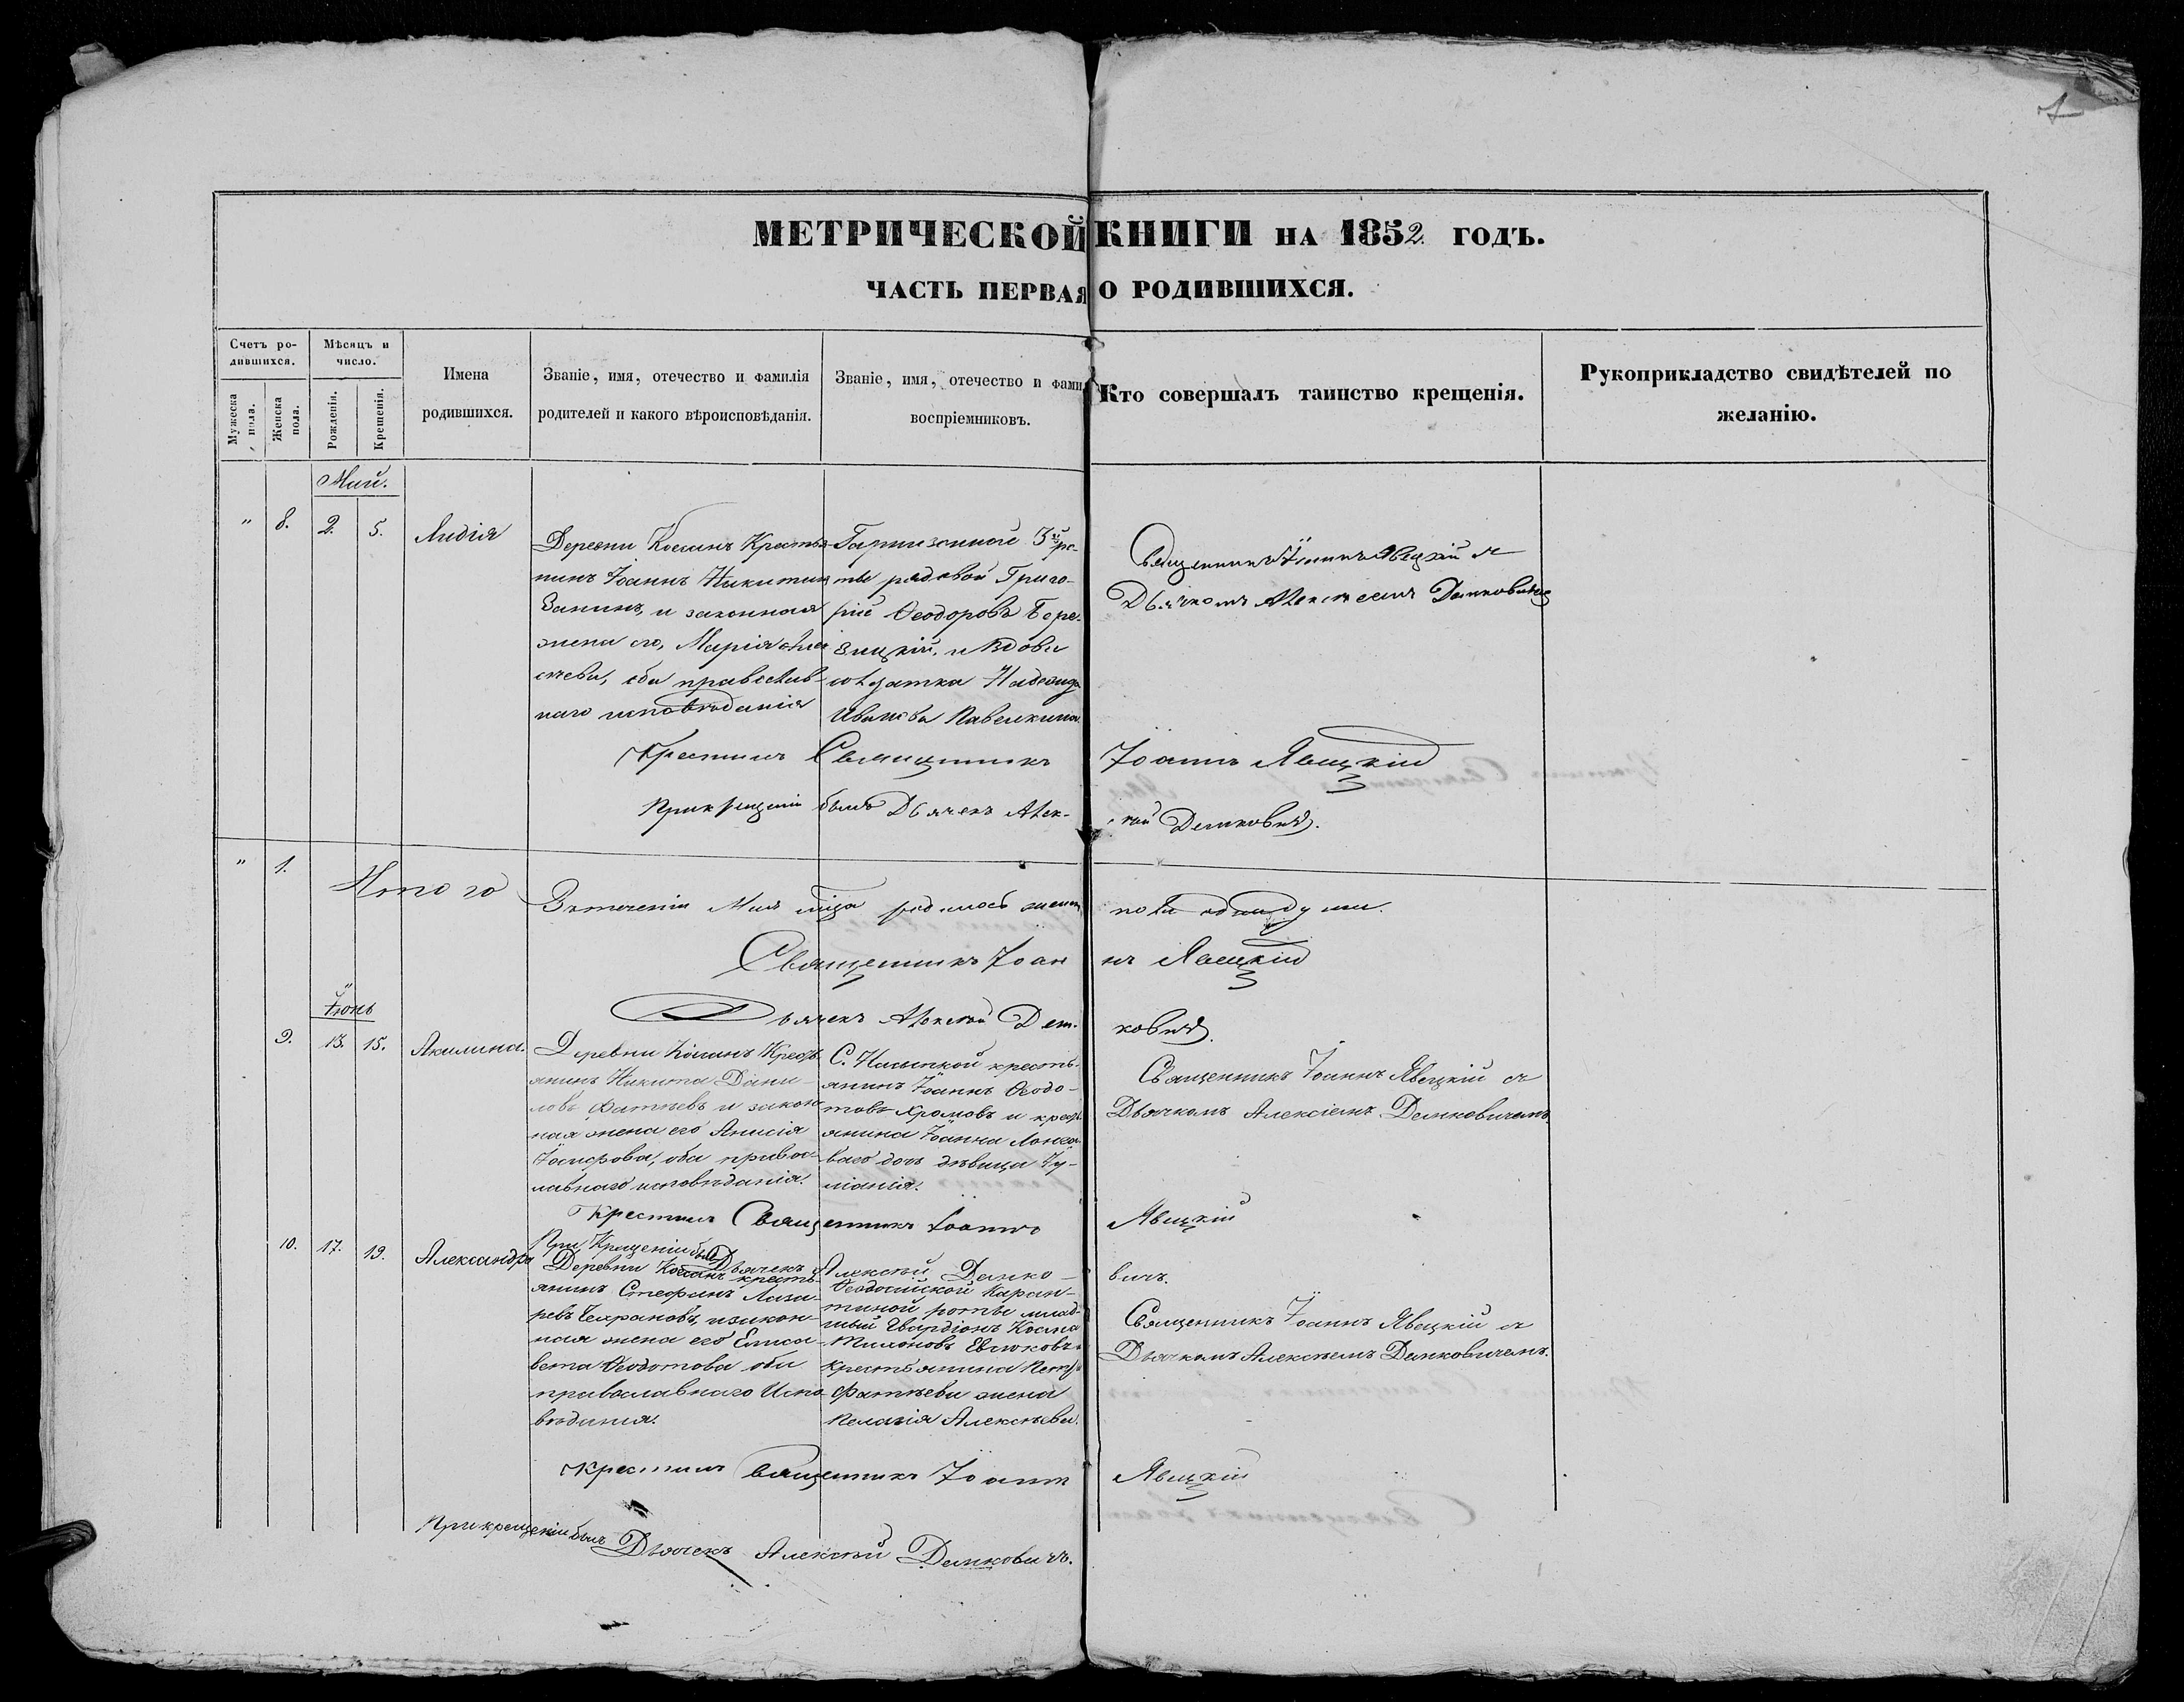 1
МЕТРИЧЕСКОЙ КНИГИ НА 1852 ГОДЪ.
ЧАСТЬ ПЕРВАЯ О РОДИВШИХСЯ.
Счетъ ро-
дившихся.
Мужеска
пола.
Женска
пола.
Мѣсяцъ и
число.
Рожденія.
Крещенія.
Имена
родившихся.
Званіе, имя, отечество и фамилія
родителей и какого вѣроисповѣданія.
Званіе, имя, отечество и фами
воспріемниковъ.
Кто совершалъ таинство крещенія.
Рукоприкладство свидѣтелей по
желанію.
Май.
" 8. 2. 5. Лидія
Деревни Кошанъ Крестья-
нинъ Іоаннъ Никитинъ
Занинъ, и законная
жена его, Марія
оба православ-
наго исповѣданія
Гарнизонной 3й ро-
ты рядовой Григо-
рій Ѳеодоровъ
и вдова
солдатка Надежда
Иванова
Священникъ Іоаннъ Явецкій съ
Дьячкомъ Алексѣемъ Демковичемъ
Крестилъ Священникъ Іоаннъ Явецкій
При крещеніи былъ Дьячекъ Алек-сѣй Демковичъ.
" 1. Итого
Въ теченіи Мая м-ца родилось женск. пола одна душа.
Священникъ Іоаннъ Явецкій
Дьячекъ Алексѣй Демковичъ.
Іюнь
9. 13. 15. Акилина.
Деревни Кошанъ Кресть-
янинъ Никита Дани-
ловъ Фатѣевъ и закон-
ная жена его Анисія
оба правос-
лавнаго исповѣданія.
С. Насыпкой кресть-
янинъ Іоаннъ Ѳеодо-
товъ Храмовъ и крест-
янина Іоанна
дочь дѣвица Іу-
ліанія.
Священникъ Іоаннъ Явецкій съ
Дьячкомъ Алексіемъ Демковичемъ.
Крестилъ Священникъ Іоаннъ Явецкій
При Крещеніи былъ Дьячекъ Алексѣй Демко-вичъ.
10. 17. 19. Александра
Деревни Кошанъ кресть-
янинъ Стефанъ Лаза-
ревъ и закон-
ная жена его Елиса-
вета Ѳеодотова оба
православнаго Испо-
вѣданія.
Ѳеодосійской Каран-
тиной роты млад-
шый Гвардіонъ Косма
Тимоновъ Евлюковъ и
крестьянина Петра
Фатѣева жена
Пелагія Алексѣева.
Священникъ Іоаннъ Явецкій съ
Дьячкомъ Алексѣемъ Демковичемъ.
Крестилъ Священникъ Іоаннъ Явецкій
При крещеніи былъ Дьячекъ Алексѣй Демковичъ.